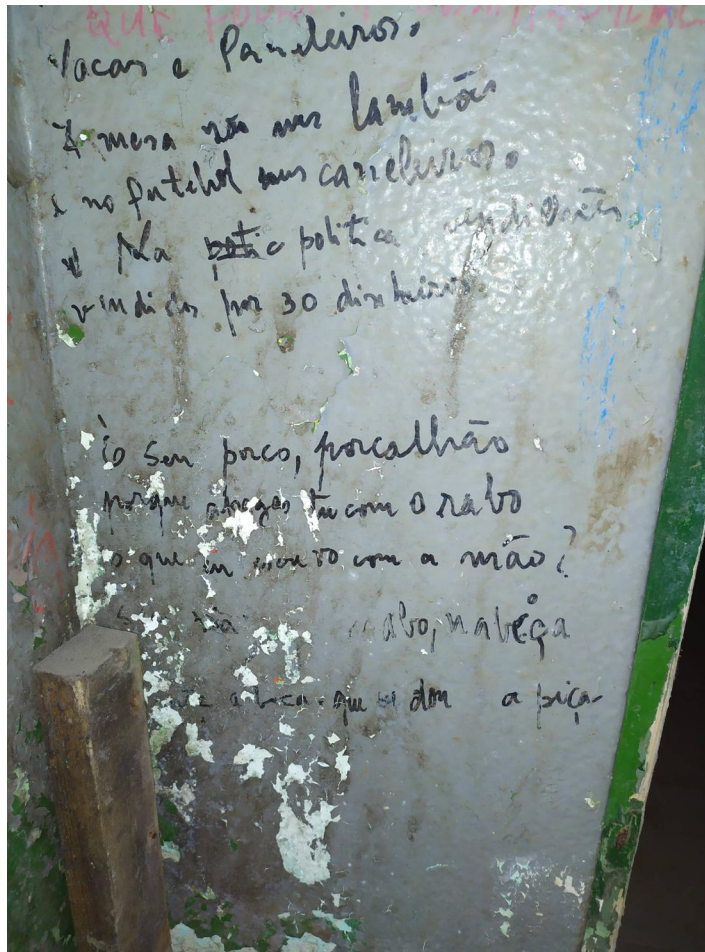 QUE
Vacas e Paneleiros.
À mesa são uns lambões
e no futebol uns caneleiros.
e na politica vendilhões
vendidos por 30 dinheiros.
Ó seu porco, porcalhão
porque esfregas tu com o rabo
o que eu escrevo com a mão?
rabo, nabiça
que eu dou a piça